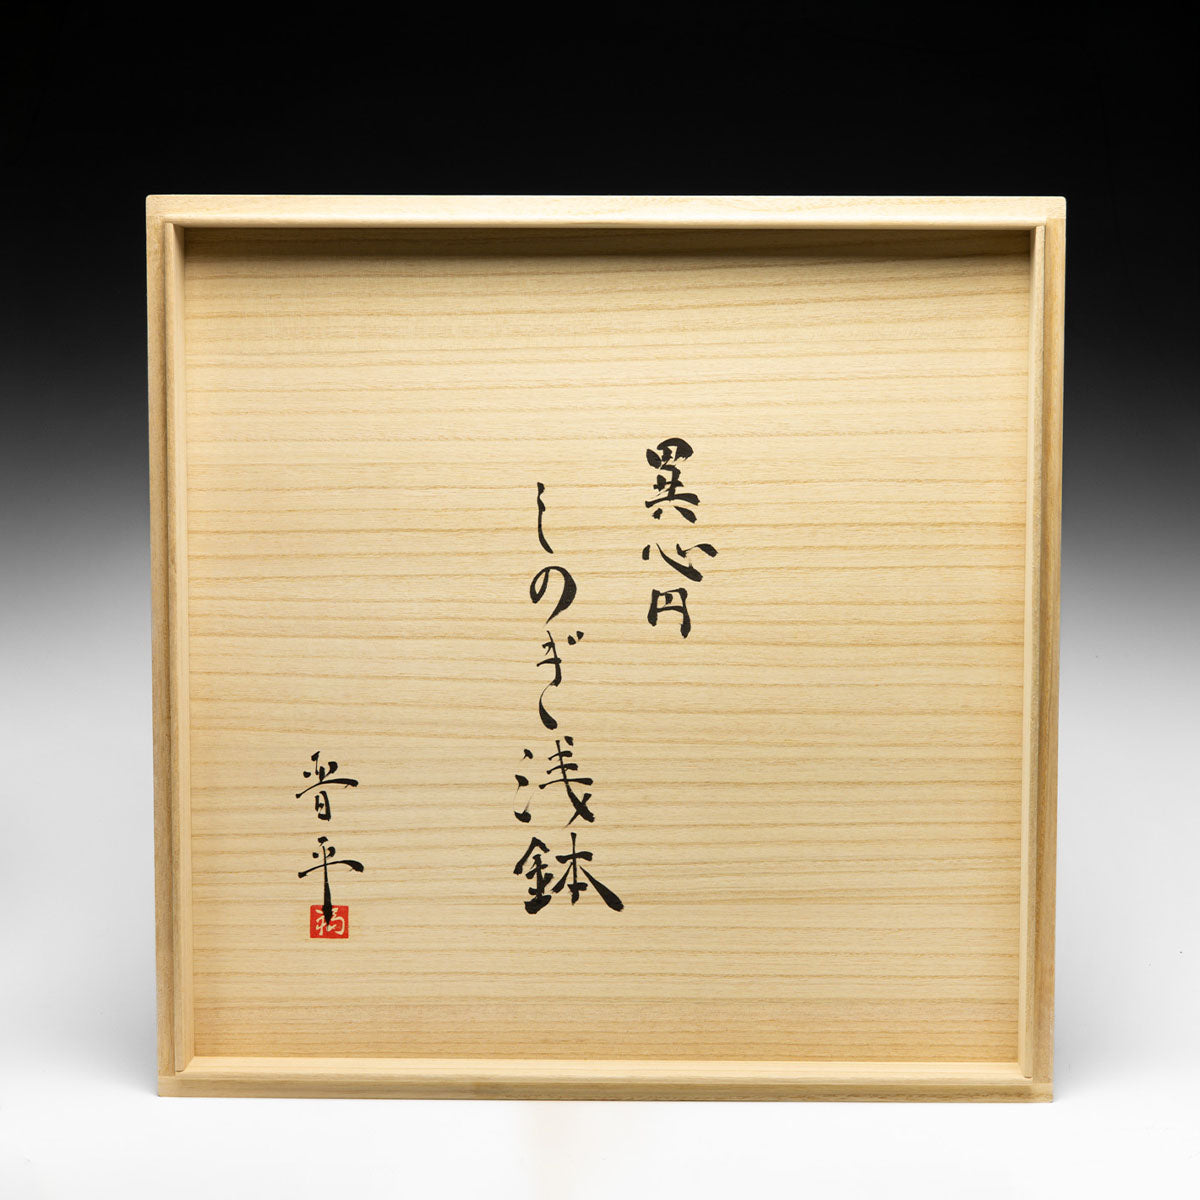 異心円
しのぎ浅鉢
晋平
福